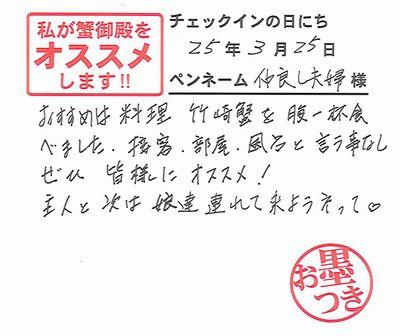 私が蟹御殿を
オススメ
します!!
チェックインの日にち
25年3月25日
ペンネーム 仲良し夫婦 様
おすすめは料理 竹崎蟹を腹一杯食
べました。接客、部屋、風呂と言う事なし
ぜひ 皆様に オススメ!
主人と次は娘達連れて来ようネって♡
お墨つき